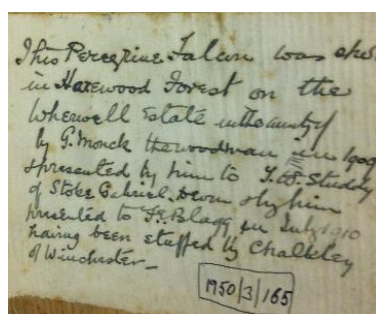 This Peregrine Falcon was shot
in Harewood Forest on the
Wherwell Estate in the county of
by G. Monck the woodman in 1909
& presented by him to T. W. Studdy
of Stoke Gabriel. Devon & by him
presented to Fr. Blagg in July 1910
having been stuffed by Chalkley
of Winchester_
1950/3/165